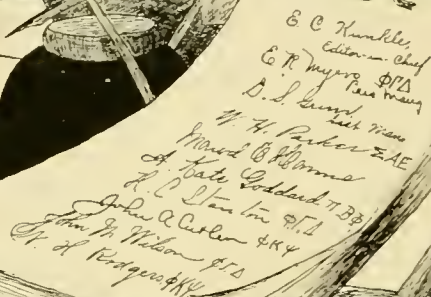 E. C. Kunkle,
Editor-in-Chief
E. R. Myers ΦΓΔ
Bus Mang
D. S. Gund
W. H. Parker ΣAE
Maud E
A. Kate Goddard, π. Β Φ.
H. C. Stanton ΦΓΔ
John A Cutler ΦΚΨ
John M. Wilson ΦΓΔ
W. H. Rodgers ΦΚΨ